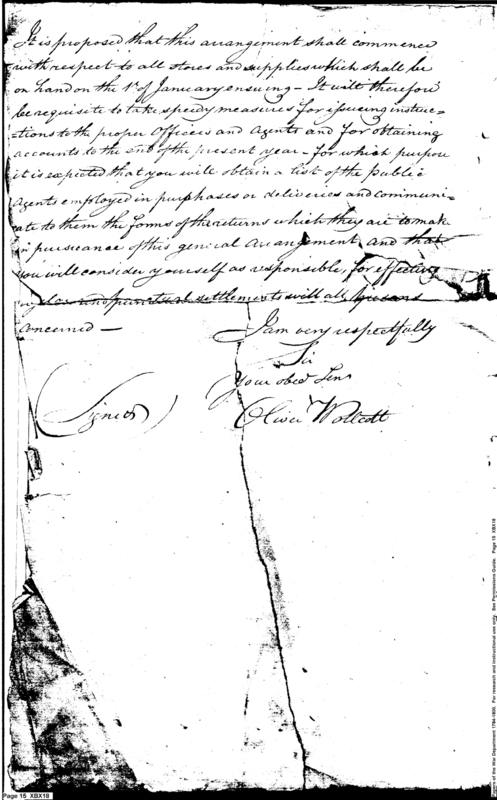 It is proposed that this arrangement shall commence
with respect to all stores and supplies which shall be
on hand on the 1st of January ensuing - It will therefore
be requisite to take speedy measures for issuing instruc=
=tions to the proper Officers and Agents and for obtaining
accounts to the end of the present year - for which purpose
it is expected that you will obtain a list of the Public
Agents employed in purchases or deliveries and communi=
ate to them the forms of the returns which they are to make
in pursuance of this general arrangement, and that
you will consider yourself as responsible, for effecting
and punctual settlements with all persons
concerned -
I am very respectfully
Sir
Your obed Serv
(Signed) Oliver Wolcott
Page 15 XBX18
of the War Department 1784-1800. For research and instructional use only. See Permissions Guide. Page 15 XBX18